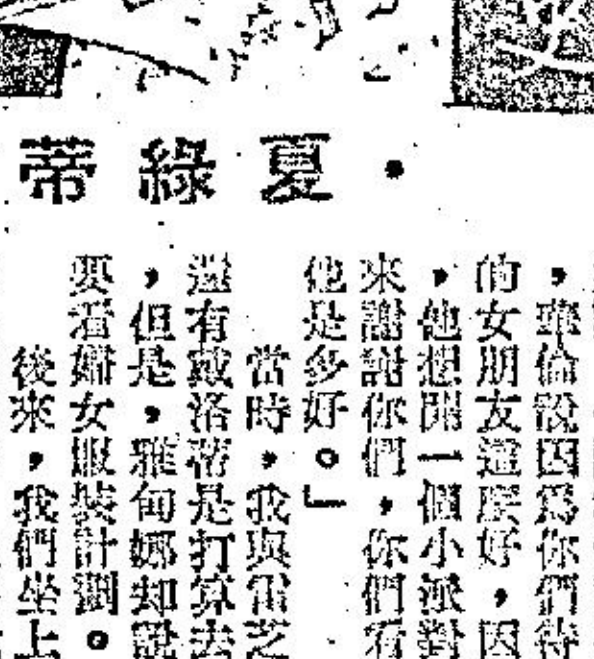 •夏綠蒂
，華倫說因爲你們待
的女朋友這麽好，因
，他想開一個小派對
來謝謝你們，你們看
他是多好。」
當時，我與雷芝
還有戴洛蒂是打算去
，但是，雅甸娜却說
要看婦女服裝計劃。
後來，我們坐上